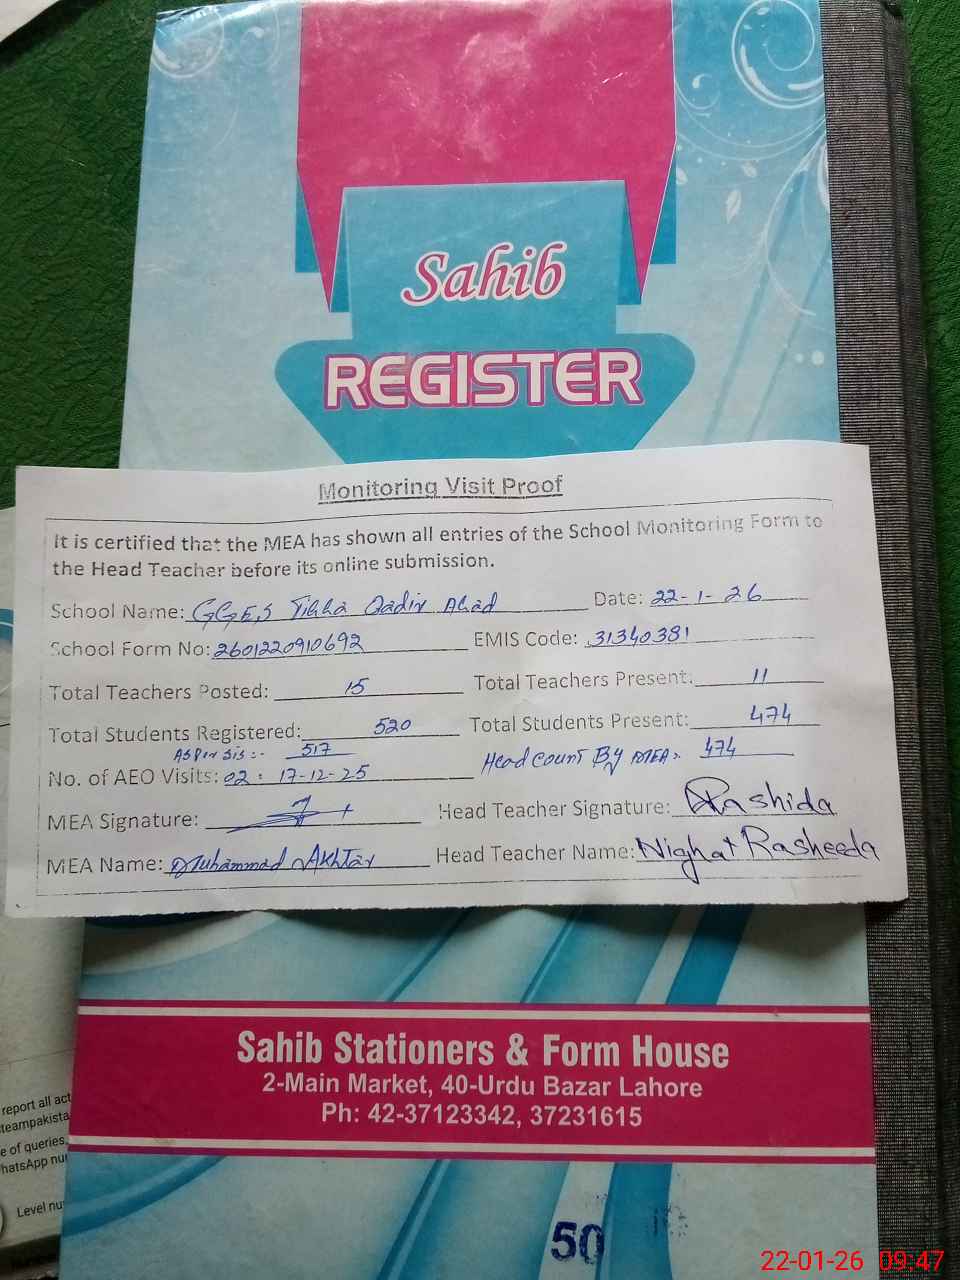 Sahib
REGISTER
Monitoring Visit Proof
It is certified that the MEA has shown all entries of the School Monitoring Form to
the Head Teacher before its online submission.
School Name: GGES Tibba Qadir Abad Date: 22-1-26
School Form No: 2601220910692 EMIS Code: 31340381
Total Teachers Posted: 15 Total Teachers Present: 11
Total Students Registered: 520 Total Students Present: 474
As Per Sis:- 517 Head Count By MEA: 474
No. of AEO Visits: 02 : 17-12-25
MEA Signature: Head Teacher Signature: Rashida
MEA Name: Muhammad Akhtar Head Teacher Name: Nighat Rasheeda
Sahib Stationers & Form House
2-Main Market, 40-Urdu Bazar Lahore
Ph: 42-37123342, 37231615
report all act
teampakista
e of queries,
hatsApp nu
Level nu
50
22-01-26 09:47